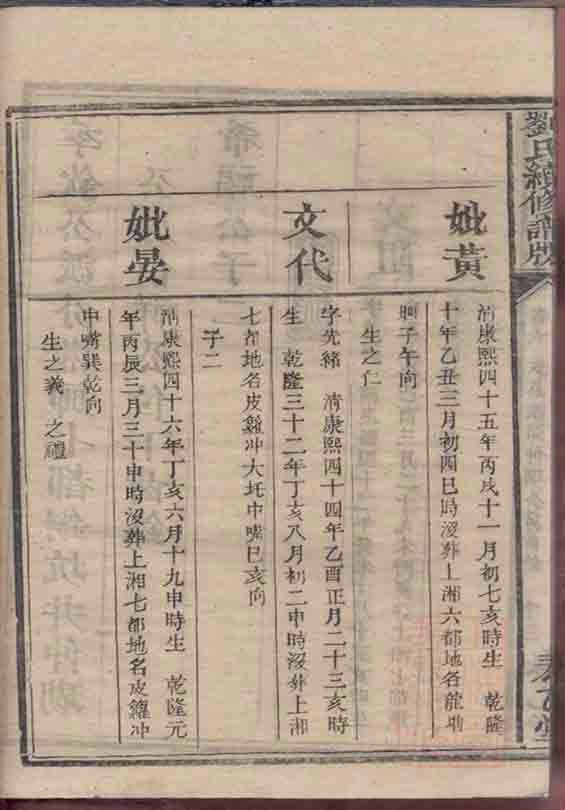 劉氏續修譜版
妣黃
清康熙四十五年丙戌十一月初七亥時生 乾隆
十年乙丑三月初四巳時沒葬上湘六都地名龍塘
子午向
生之仁
文代
字先緒 清康熙四十四年乙酉正月二十三亥時
生 乾隆三十二年丁亥八月初二申時沒葬上湘
七都地名皮籮冲大圫中嘴巳亥向
子二
妣晏
清康熙四十六年丁亥六月十九申時生 乾隆元
年丙辰三月三十申時沒葬上湘七都地名皮籮冲
中嘴巽乾向
生之義 之禮